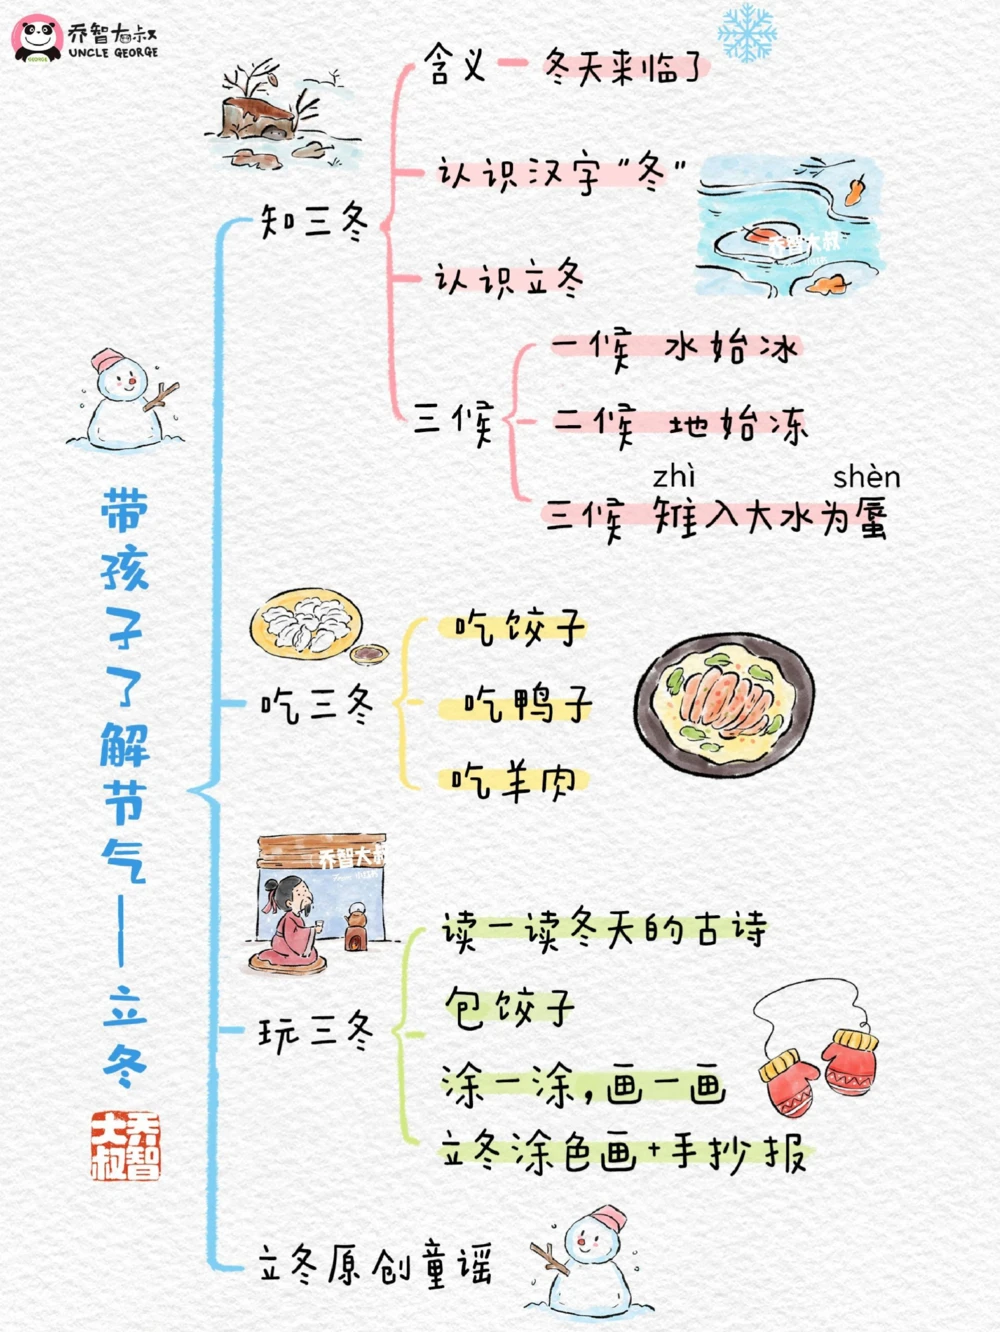 乔智大叔
UNCLE GEORGE
GEORGE
带孩子了解节气——立冬
乔智大叔
知三冬
含义 — 冬天来临了
认识汉字"冬"
认识立冬
乔智大叔
三候
一候 水始冰
二候 地始冻
zhì shèn
三候 雉入大水为蜃
吃三冬
吃饺子
吃鸭子
吃羊肉
乔智大叔
玩三冬
读一读冬天的古诗
包饺子
涂一涂,画一画
立冬涂色画+手抄报
立冬原创童谣